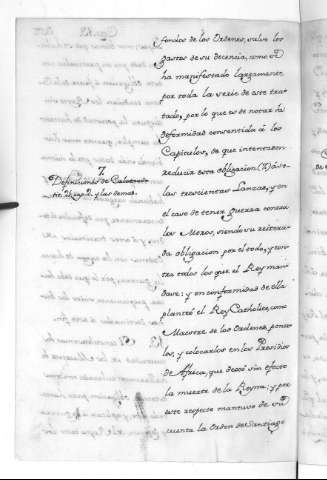 fondos de los Ordenes, salvo los
gastos de su decencia, como se
ha manifestado largamente
por toda la serie de este tra-
tado, por lo que es de notar la
deformidad convenida á los
Capitulos, de que intentasen
reducir esta obligacion (7) á so-
las trescientas Lanzas, y en
el caso de tener guerra contra
los Moros, siendo su
obligacion por el todo, y con-
tra todos los que el Rey man-
dare: y en conformidad de ella
planteó el Rey Catholico, como
Maestre de las Ordenes, poner-
los, y colocarlos en los Presidios
de Africa, que dexó sin efecto
la muerte de la Reyna; y por
este respecto mantuvo de su
cuenta la Orden de Santiago
7.
Definiciones de Calatrava
tit. cap. 2. y las demas.